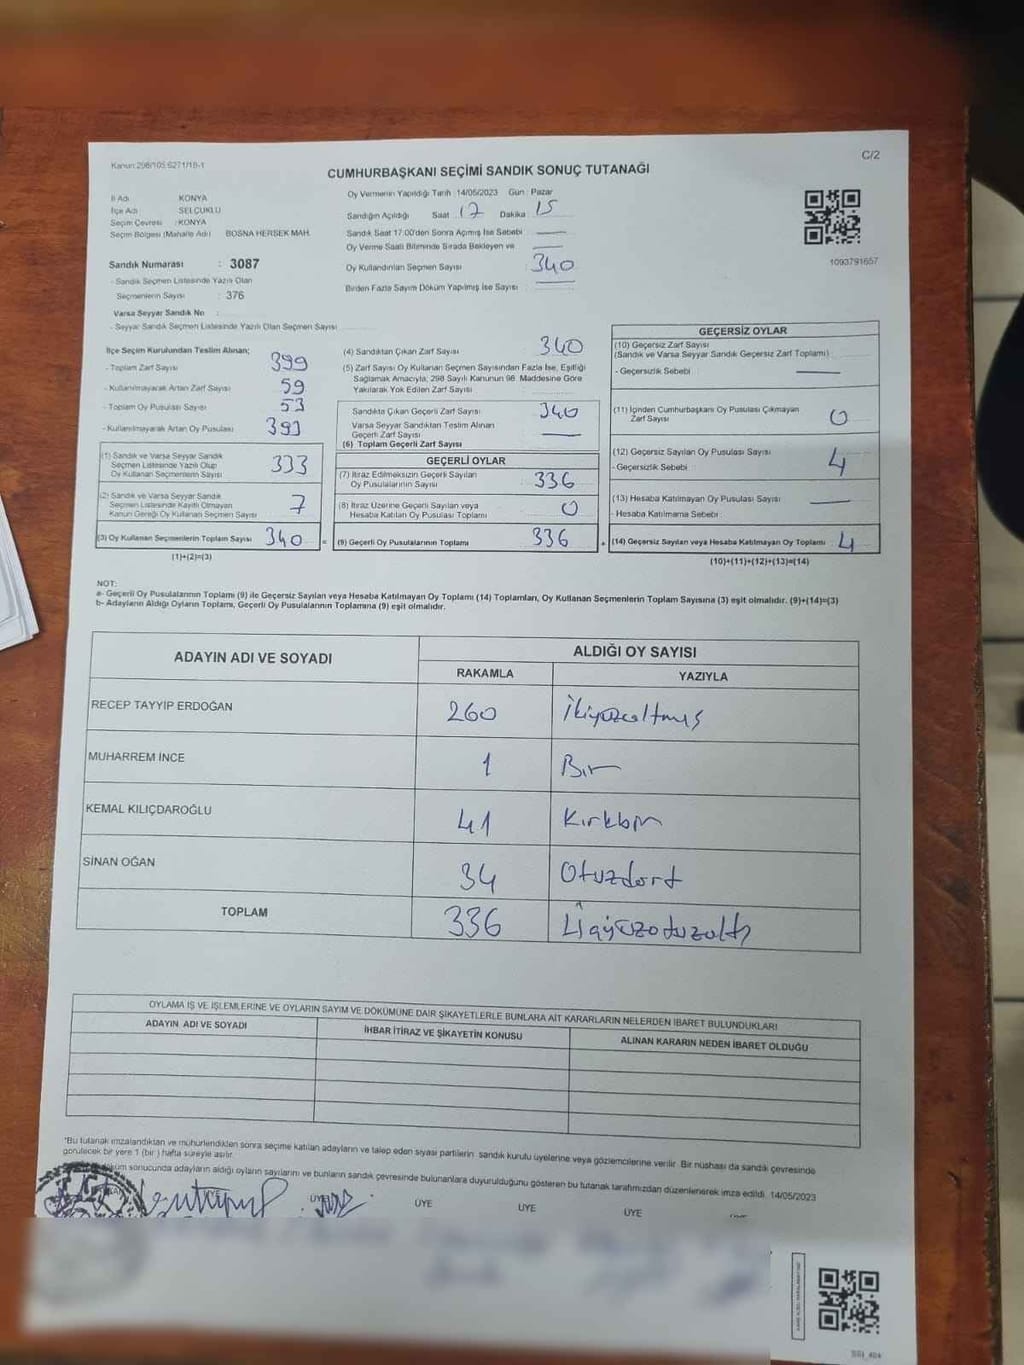 Kanun:298/105;6271/18-1
C/2
CUMHURBAŞKANI SEÇİMİ SANDIK SONUÇ TUTANAĞI
İl Adı KONYA
İlçe Adı SELÇUKLU
Seçim Çevresi : KONYA
Seçim Bölgesi (Mahalle Adı) BOSNA HERSEK MAH.
Sandık Numarası : 3087
- Sandık Seçmen Listesinde Yazılı Olan
Seçmenlerin Sayısı : 376
Varsa Seyyar Sandık No :
- Seyyar Sandık Seçmen Listesinde Yazılı Olan Seçmen Sayısı
Oy Vermenin Yapıldığı Tarih :14/05/2023 Gün : Pazar
Sandığın Açıldığı Saat 17 Dakika : 15
Sandık Saat 17:00'den Sonra Açımış İse Sebebi : —
Oy Verme Saati Bitiminde Sırada Bekleyen ve —
Oy Kullandırılan Seçmen Sayısı : 340
Birden Fazla Sayım Döküm Yapılmış İse Sayısı : —
1093791657
İlçe Seçim Kurulundan Teslim Alınan;
- Toplam Zarf Sayısı 399
- Kullanılmayarak Artan Zarf Sayısı 59
- Toplam Oy Pusulası Sayısı 53
- Kullanılmayarak Artan Oy Pusulası 393
(1) Sandık ve Varsa Seyyar Sandık
Seçmen Listesinde Yazılı Olup
Oy Kullanan Seçmenlerin Sayısı 333
(2) Sandık ve Varsa Seyyar Sandık
Seçmen Listesinde Kayıtlı Olmayan
Kanun Gereği Oy Kullanan Seçmen Sayısı 7
(3) Oy Kullanan Seçmenlerin Toplam Sayısı 340
(1)+(2)=(3)
(4) Sandıktan Çıkan Zarf Sayısı 340
(5) Zarf Sayısı Oy Kullanan Seçmen Sayısından Fazla İse, Eşitliği
Sağlamak Amacıyla; 298 Sayılı Kanunun 98. Maddesine Göre
Yakılarak Yok Edilen Zarf Sayısı
Sandıkta Çıkan Geçerli Zarf Sayısı 340
Varsa Seyyar Sandıktan Teslim Alınan
Geçerli Zarf Sayısı —
(6) Toplam Geçerli Zarf Sayısı
GEÇERLİ OYLAR
(7) İtiraz Edilmeksizin Geçerli Sayılan
Oy Pusulalarının Sayısı 336
(8) İtiraz Üzerine Geçerli Sayılan veya
Hesaba Katılan Oy Pusulası Toplamı 0
= (9) Geçerli Oy Pusulalarının Toplamı 336
GEÇERSİZ OYLAR
(10) Geçersiz Zarf Sayısı
(Sandık ve Varsa Seyyar Sandık Geçersiz Zarf Toplamı)
- Geçersizlik Sebebi : —
(11) İçinden Cumhurbaşkanı Oy Pusulası Çıkmayan
Zarf Sayısı 0
(12) Geçersiz Sayılan Oy Pusulası Sayısı 4
- Geçersizlik Sebebi :
(13) Hesaba Katılmayan Oy Pusulası Sayısı —
- Hesaba Katılmama Sebebi :
+ (14) Geçersiz Sayılan veya Hesaba Katılmayan Oy Toplamı 4
(10)+(11)+(12)+(13)=(14)
NOT:
a- Geçerli Oy Pusulalarının Toplamı (9) ile Geçersiz Sayılan veya Hesaba Katılmayan Oy Toplamı (14) Toplamları, Oy Kullanan Seçmenlerin Toplam Sayısına (3) eşit olmalıdır. (9)+(14)=(3)
b- Adayların Aldığı Oyların Toplamı, Geçerli Oy Pusulalarının Toplamına (9) eşit olmalıdır.
ADAYIN ADI VE SOYADI ALDIĞI OY SAYISI
RAKAMLA YAZIYLA
RECEP TAYYİP ERDOĞAN 260 İkiyüzaltmış
MUHARREM İNCE 1 Bir
KEMAL KILIÇDAROĞLU 41 Kırkbir
SİNAN OĞAN 34 Otuzdört
TOPLAM 336
OYLAMA İŞ VE İŞLEMLERİNE VE OYLARIN SAYIM VE DÖKÜMÜNE DAİR ŞİKAYETLERLE BUNLARA AİT KARARLARIN NELERDEN İBARET BULUNDUKLARI
ADAYIN ADI VE SOYADI İHBAR İTİRAZ VE ŞİKAYETİN KONUSU ALINAN KARARIN NEDEN İBARET OLDUĞU
*Bu tutanak imzalandıktan ve mühürlendikten sonra seçime katılan adayların ve talep eden siyasi partilerin sandık kurulu üyelerine veya gözlemcilerine verilir. Bir nüshası da sandık çevresinde
görülecek bir yere 1 (bir) hafta süreyle asılır.
döküm sonucunda adayların aldığı oyların sayılarını ve bunların sandık çevresinde bulunanlara duyurulduğunu gösteren bu tutanak tarafımızdan düzenlenerek imza edildi. 14/05/2023
ÜYE ÜYE ÜYE ÜYE ÜYE